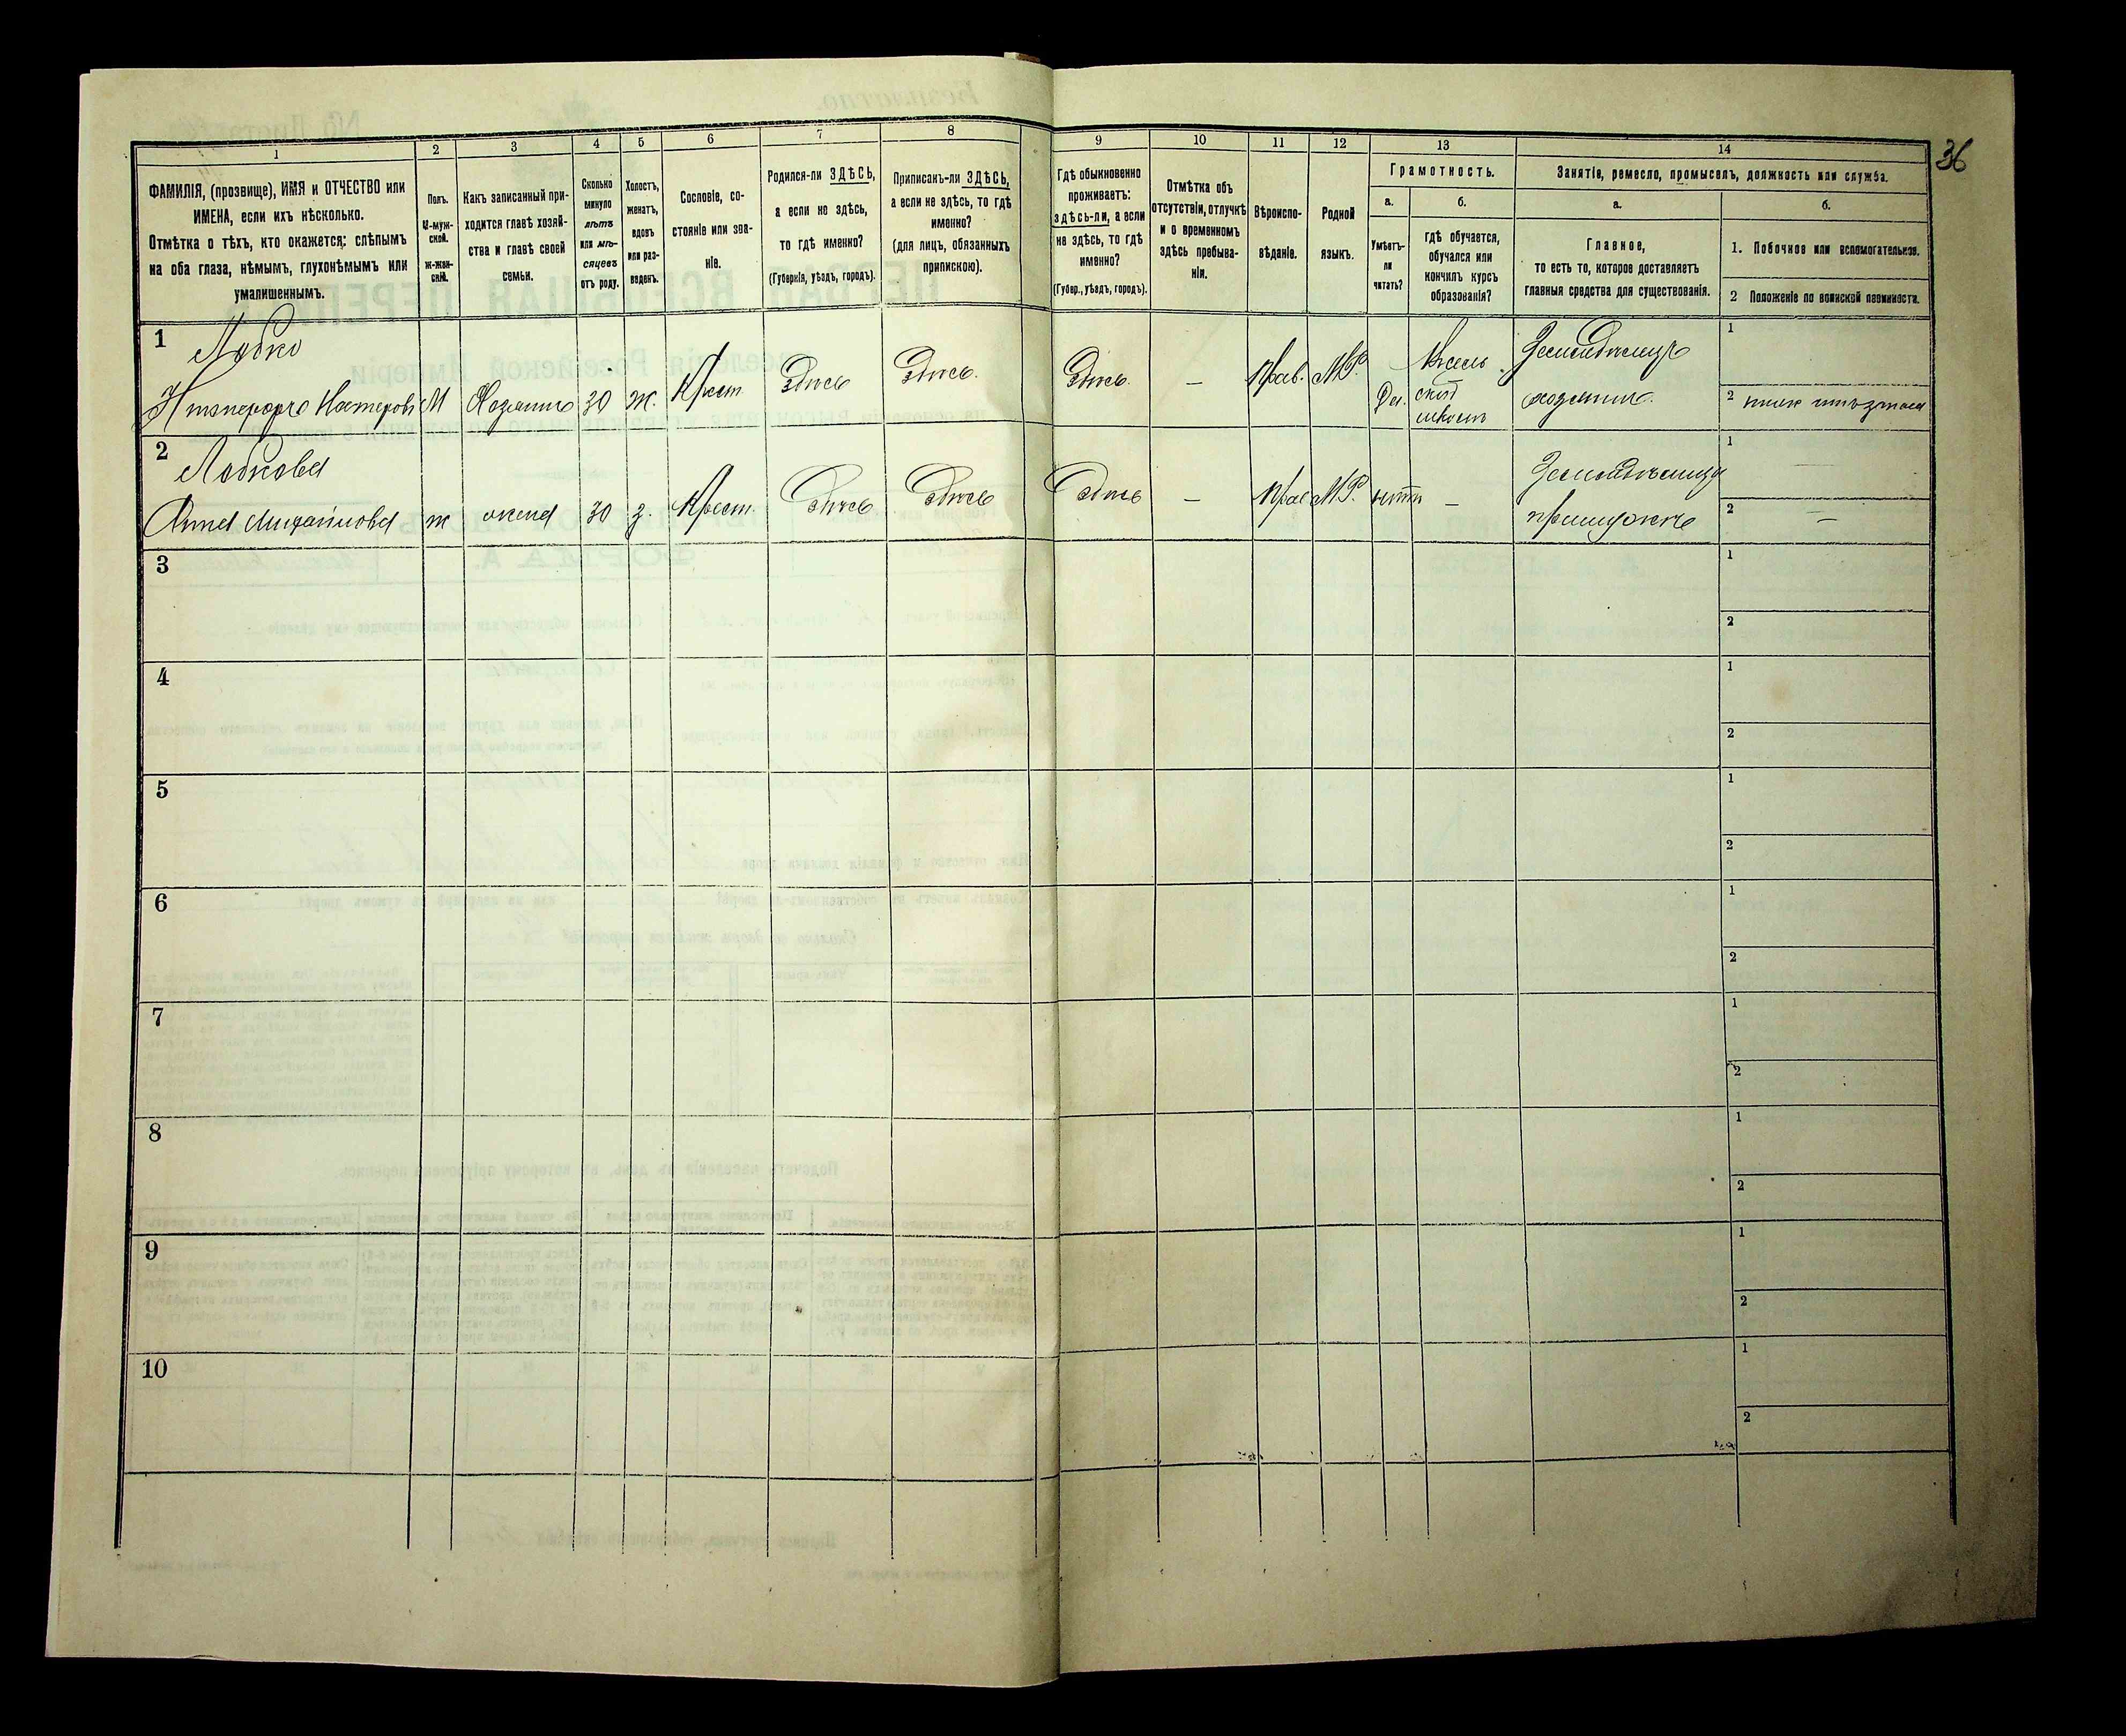 36
1
2
3
4
5
6
7
8
9
10
11
12
13
14
ФАМИЛІЯ, (прозвище), ИМЯ и ОТЧЕСТВО или
ИМЕНА, если ихъ нѣсколько.
Отмѣтка о тѣхъ, кто окажется: слѣпымъ
на оба глаза, нѣмымъ, глухонѣмымъ или
умалишеннымъ.
Полъ.
М-муж-
ской.
ж-жен-
скій.
Какъ записанный при-
ходится главѣ хозяй-
ства и главѣ своей
семьи.
Сколько
минуло
лѣтъ
или мѣ-
сяцевъ
отъ роду.
Холостъ,
женатъ,
вдовъ
или раз-
веденъ.
Сословіе, со-
стояніе или зва-
ніе.
Родился-ли ЗДѢСЬ,
а если не здѣсь,
то гдѣ именно?
(Губернія, уѣздъ, городъ).
Приписанъ-ли ЗДѢСЬ,
а если не здѣсь, то гдѣ
именно?
(для лицъ, обязанныхъ
припискою).
Гдѣ обыкновенно
проживаетъ:
здѣсь-ли, а если
не здѣсь, то гдѣ
именно?
(Губер., уѣздъ, городъ).
Отмѣтка объ
отсутствіи, отлучкѣ
и о временномъ
здѣсь пребыва-
ніи.
Вѣроиспо-
вѣданіе.
Родной
языкъ.
Грамотность.
а.
Умѣетъ-
ли
читать?
б.
Гдѣ обучается,
обучался или
кончилъ курсъ
образованія?
Занятіе, ремесло, промыселъ, должность или служба.
а.
Главное,
то есть то, которое доставляетъ
главныя средства для существованія.
б.
1. Побочное или вспомогательное.
2 Положеніе по воинской повинности.
1
Лобко
М Хозяинъ 30 ж. Крест. Здѣсь Здѣсь. Здѣсь. — прав. МР. Да.
Земледѣлецъ
хозяинъ.
1
2
2
Лобкова
Анна Михайлова ж жена 30 з. Крест. Здѣсь Здѣсь Здѣсь — прав МР. нѣтъ —
1 —
2 —
3
1
2
4
1
2
5
1
2
6
1
2
7
1
2
8
1
2
9
1
2
10
1
2